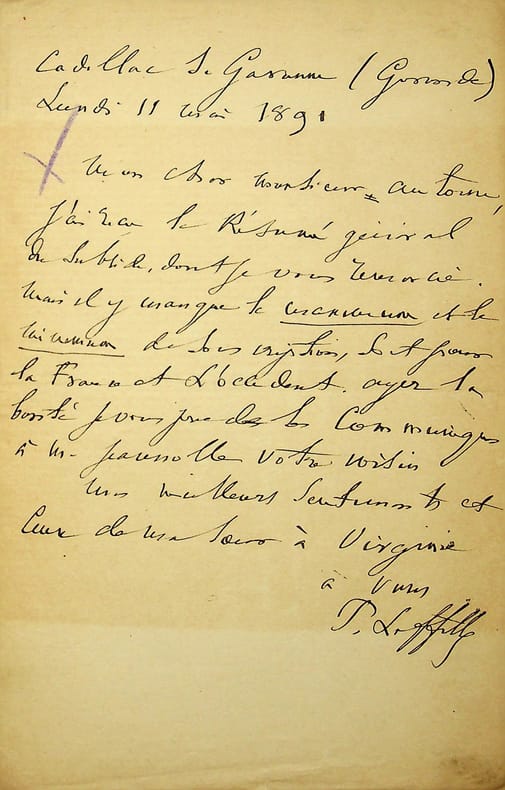 Cadillac S. Garonne (Gironde)
Lundi 11 mai 1891
Mon cher monsieur
j'ai reçu le Résumé général
du Subside, dont je vous remercie.
Mais il y manque le maximum et le
minimum de souscription, soit pour
la France et l'Occident. ayez la
bonté je vous prie de les Communiquer
à M. votre voisin
Mes meilleurs Sentiments et
Ceux de ma Soeur à Virginie
à vous
P. Laffitte